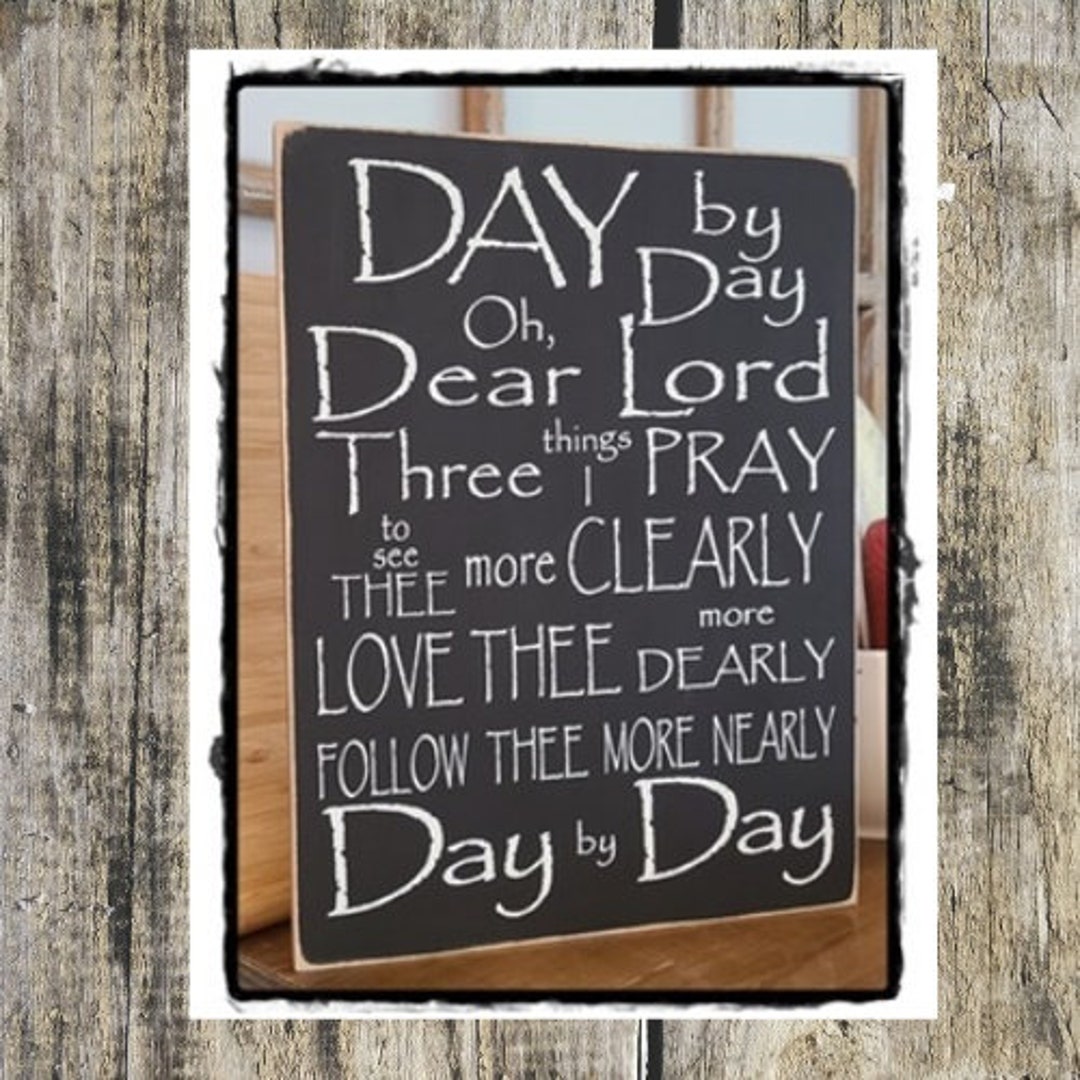 DAY by Day
Oh,
Dear Lord
Three things I PRAY
to see THEE more CLEARLY
LOVE THEE more DEARLY
FOLLOW THEE MORE NEARLY
Day by Day